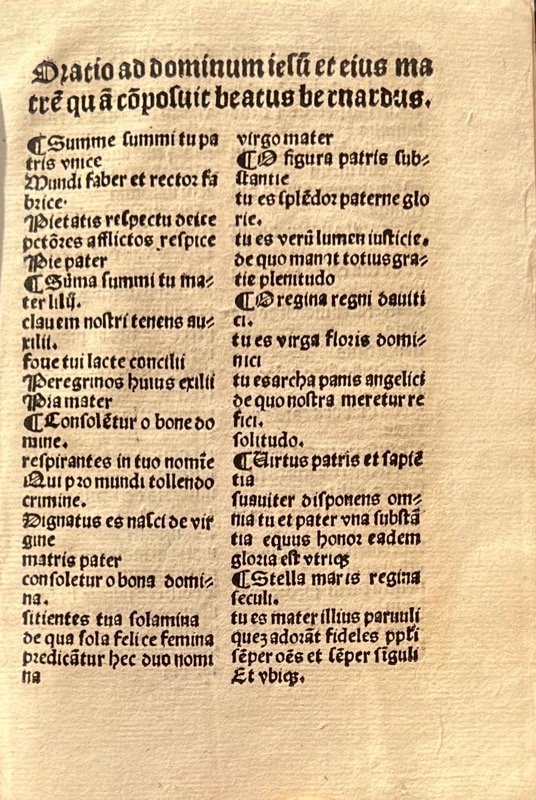 Oratio ad dominum iesū et eius ma
trē quā cōposuit beatus bernardus.
¶ Summe summi tu pa
tris vnice
Mundi faber et rector fa
brice·
Pietatis respectu deice
pctōres afflictos respice
Pie pater
¶ Sūma summi tu ma⸗
ter lilij.
clauem nostri tenens au⸗
xilii.
foue tui lacte concilii
Peregrinos huius exilii
Pia mater
¶ Consolētur o bone do
mine.
respirantes in tuo nomīe
Qui pro mundi tollendo
crimine.
Dignatus es nasci de vir
gine
matris pater
consoletur o bona domi⸗
na.
sitientes tua solamina
de qua sola felice femina
predicātur hec duo nomi
na
virgo mater
¶ O figura patris sub⸗
stantie
tu es splēdor paterne glo
rie.
tu es verū lumen iusticie.
de quo manat totius gra⸗
tie plenitudo
¶ O regina regni dauiti
ci.
tu es virga floris domi⸗
nici
tu es archa panis angelici
de quo nostra meretur re
fici.
solitudo.
¶ Uirtus patris et sapiē
tia
suauiter disponens om⸗
nia tu et pater vna substā
tia equus honor eadem
gloria est vtriqꝫ
¶ Stella maris regina
seculi.
tu es mater illius paruuli
queꝫ adorāt fideles ppl̄i
sēper oēs et sēper sīguli
Et vbiqꝫ.